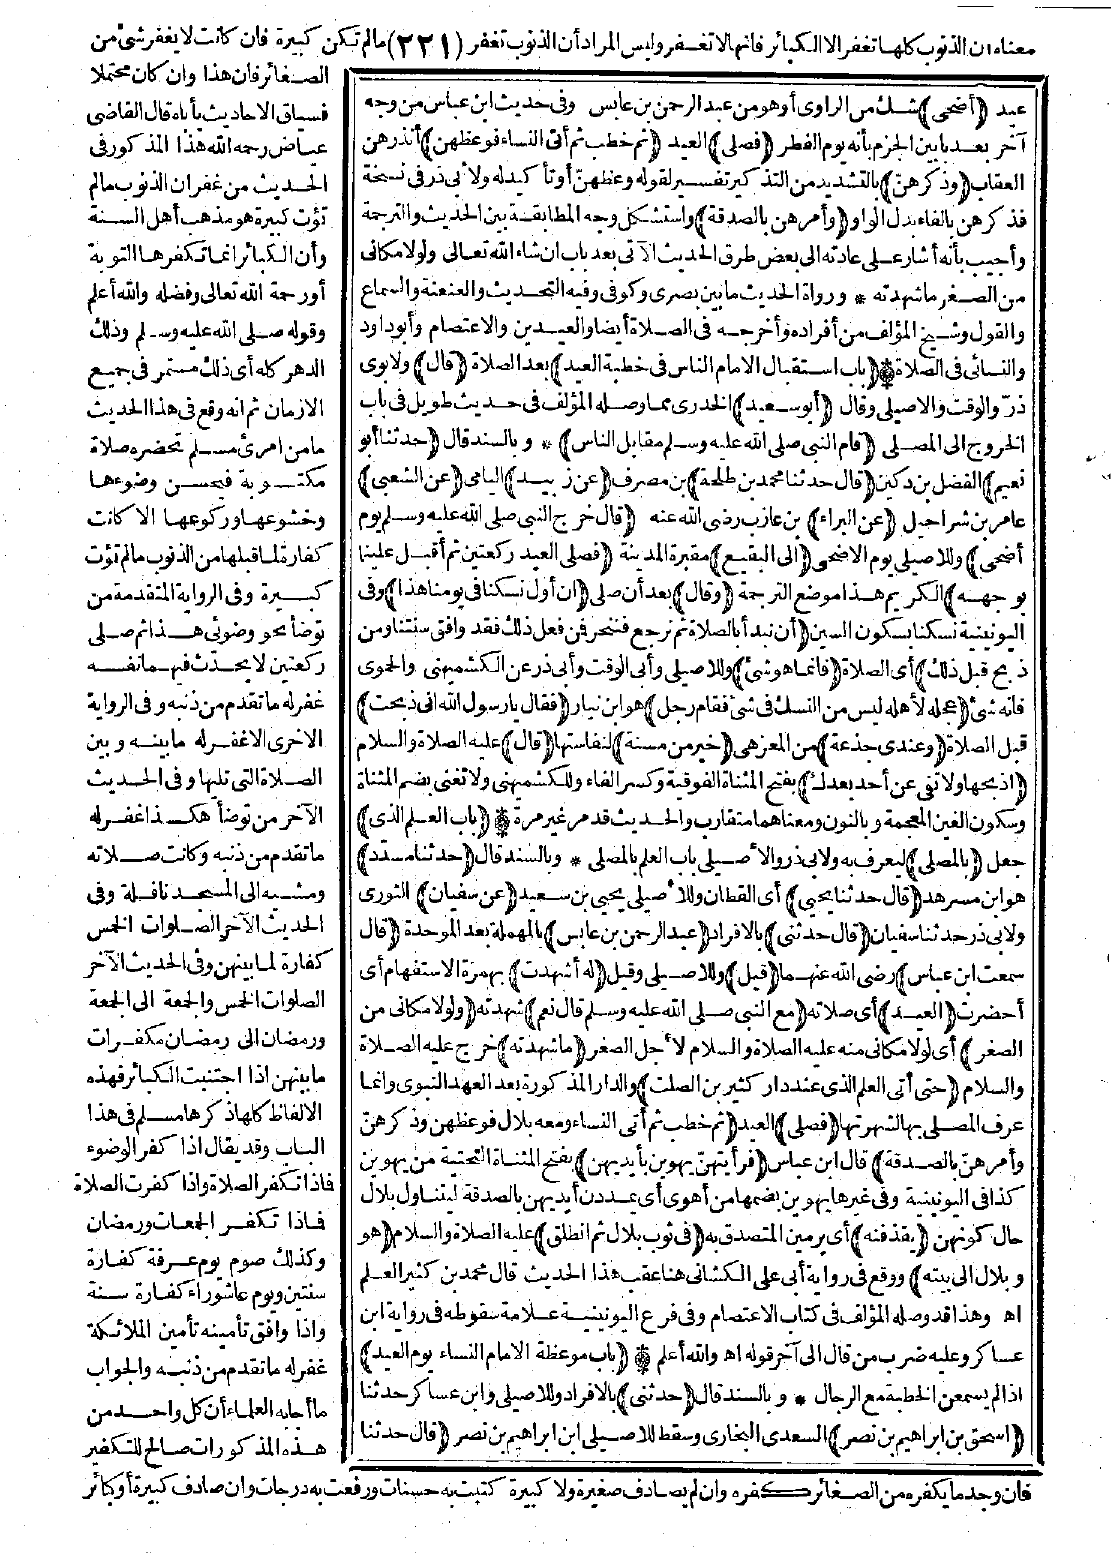 معناه ان الذنوب كلها تغفر الا الكبائر فانها لا تغفر وليس المراد أن الذنوب تغفر (٢٢١) مالم تكن كبيرة فان كانت لا يغفر شئ من
الصغائر فان هذا وان كان محتملا
فسياق الاحاديث يأباه قال القاضى
عياض رحمه الله هذا المذكور فى
الحديث من غفران الذنوب مالم
تؤت كبيرة هو مذهب أهل السنة
وأن الكبائر انما تكفرها التوبة
أو رحمة الله تعالى وفضله والله أعلم
وقوله صلى الله عليه وسلم وذلك
الدهر كله أى ذلك مستمر فى جميع
الازمان ثم انه وقع فى هذا الحديث
مامن امرئ مسلم تحضره صلاة
مكتوبة فيحسن وضوءها
وخشوعها وركوعها الا كانت
كفارة لما قبلها من الذنوب مالم تؤت
كبيرة وفى الرواية المتقدمة من
توضأ نحو وضوئى هذا ثم صلى
ركعتين لا يحدث فيهما نفسه
غفر له ما تقدم من ذنبه وفى الرواية
الاخرى الاغفر له ما بينه وبين
الصلاة التى تليها وفى الحديث
الآخر من توضأ هكذا غفر له
ما تقدم من ذنبه وكانت صلاته
ومشيه الى المسجد نافلة وفى
الحديث الآخر الصلوات الخمس
كفارة لما بينهن وفى الحديث الآخر
الصلوات الخمس والجمعة الى الجمعة
ورمضان الى رمضان مكفرات
ما بينهن اذا اجتنبت الكبائر فهذه
الالفاظ كلها ذكرها مسلم فى هذا
الباب وقد يقال اذا كفر الوضوء
فاذا تكفر الصلاة واذا كفرت الصلاة
فاذا تكفر الجمعات ورمضان
وكذلك صوم يوم عرفة كفارة
سنتين ويوم عاشوراء كفارة سنة
واذا وافق تأمينه تأمين الملائكة
غفر له ما تقدم من ذنبه والجواب
ما أجابه العلماء أن كل واحد من
هذه المذكورات صالح للتكفير
عيد (أضحى) شك من الراوى أو هو من عبد الرحمن بن عابس وفى حديث ابن عباس من وجه
آخر بعد بابين الجزم بأنه يوم الفطر (فصلى) العيد (ثم خطب ثم أتى النساء فوعظهن) أنذرهن
العقاب (وذكرهن) بالتشديد من التذكير تفسير لقوله وعظهن أو تأكيد له ولابى ذر فى نسخة
فذكرهن بالفاء بدل الواو (وأمرهن بالصدقة) واستشكل وجه المطابقة بين الحديث والترجمة
وأجيب بأنه أشار على عادته الى بعض طرق الحديث الآتى بعد باب ان شاء الله تعالى ولولا مكانى
من الصغر ما شهدته * ورواة الحديث ما بين بصرى وكوفى وفيه التحديث والعنعنة والسماع
والقول وشيخ المؤلف من أفراده وأخرجه فى الصلاة أيضا والعيدين والاعتصام وأبو داود
والنسائى فى الصلاة * (باب استقبال الامام الناس فى خطبة العيد) بعد الصلاة (قال) ولابوى
ذر والوقت والاصيلى وقال (أبو سعيد) الخدرى مما وصله المؤلف فى حديث طويل فى باب
الخروج الى المصلى (قام النبى صلى الله عليه وسلم مقابل الناس) * وبالسند قال (حدثنا أبو
نعيم) الفضل بن دكين (قال حدثنا محمد بن طلحة) بن مصرف (عن زبيد) اليامى (عن الشعبى)
عامر بن شراحيل (عن البراء) بن عازب رضى الله عنه (قال خرج النبى صلى الله عليه وسلم يوم
أضحى) وللاصيلى يوم الاضحى (الى البقيع) مقبرة المدينة (فصلى العيد ركعتين ثم أقبل علينا
بوجهه) الكريم هذا موضع الترجمة (وقال) بعد أن صلى (ان أول نسكنا فى يومنا هذا) وفى
اليونينية نسكنا بسكون السين (أن نبدأ بالصلاة ثم نرجع فننحر فمن فعل ذلك فقد وافق سنتنا ومن
ذبح قبل ذلك) أى الصلاة (فانما هو شئ) وللاصيلى وأبى الوقت وأبى ذر عن الكشميهنى والحموى
فانه شئ (عجله لأهله ليس من النسك فى شئ فقام رجل) هو ابن نيار (فقال يا رسول الله انى ذبحت)
قبل الصلاة (وعندى جذعة) من المعز هى (خير من مسنة) لنفاستها (قال) عليه الصلاة والسلام
(اذبحها ولا تفى عن أحد بعدك) بفتح المثناة الفوقية وكسر الفاء وللكشميهنى ولا تغنى بضم المثناة
وسكون الغين المعجمة وبالنون ومعناهما متقارب والحديث قد مر غير مرة * (باب العلم الذى)
جعل (بالمصلى) ليعرف به ولابى ذر والأصيلى باب العلم بالمصلى * وبالسند قال (حدثنا مسدد)
هو ابن مسرهد (قال حدثنا يحيى) أى القطان وللأصيلى يحيى بن سعيد (عن سفيان) الثورى
ولابى ذر حدثنا سفيان (قال حدثنى) بالافراد (عبد الرحمن بن عابس) بالمهملة بعد الموحدة (قال
سمعت ابن عباس) رضى الله عنهما (قيل) وللاصيلى وقيل (له أشهدت) بهمزة الاستفهام أى
أحضرت (العيد) أى صلاته (مع النبى صلى الله عليه وسلم قال نعم) شهدته (ولولا مكانى من
الصغر) أى لولا مكانى منه عليه الصلاة والسلام لأجل الصغر (ما شهدته) خرج عليه الصلاة
والسلام (حتى أتى العلم الذى عند دار كثير بن الصلت) والدار المذكورة بعد العهد النبوى وانما
عرف المصلى بها لشهرتها (فصلى) العيد (ثم خطب ثم أتى النساء ومعه بلال فوعظهن وذكرهن
وأمرهن بالصدقة) قال ابن عباس (فرأيتهن يهوين بأيديهن) بفتح المثناة التحتية من يهوين
كذا فى اليونينية وفى غيرها يهوين بضمها من أهوى أى يمددن أيديهن بالصدقة ليتناول بلال
حال كونهن (يقذفنه) أى يرمين المتصدق به (فى ثوب بلال ثم انطلق) عليه الصلاة والسلام (هو
وبلال الى بيته) ووقع فى رواية أبى على الكشانى هنا عقب هذا الحديث قال محمد بن كثير العلم
اه وهذا قد وصله المؤلف فى كتاب الاعتصام وفى فرع اليونينية علامة سقوطه فى رواية ابن
عساكر وعليه ضرب من قال الى آخر قوله اه والله أعلم * (باب موعظة الامام النساء يوم العيد)
اذا لم يسمعن الخطبة مع الرجال * وبالسند قال (حدثنى) بالافراد وللاصيلى وابن عساكر حدثنا
(اسحق بن ابراهيم بن نصر) السعدى البخارى وسقط للاصيلى ابن ابراهيم بن نصر (قال حدثنا
فان وجد ما يكفره من الصغائر كفره وان لم يصادف صغيرة ولا كبيرة كتبت به حسنات ورفعت به درجات وان صادف كبيرة أو كبائر